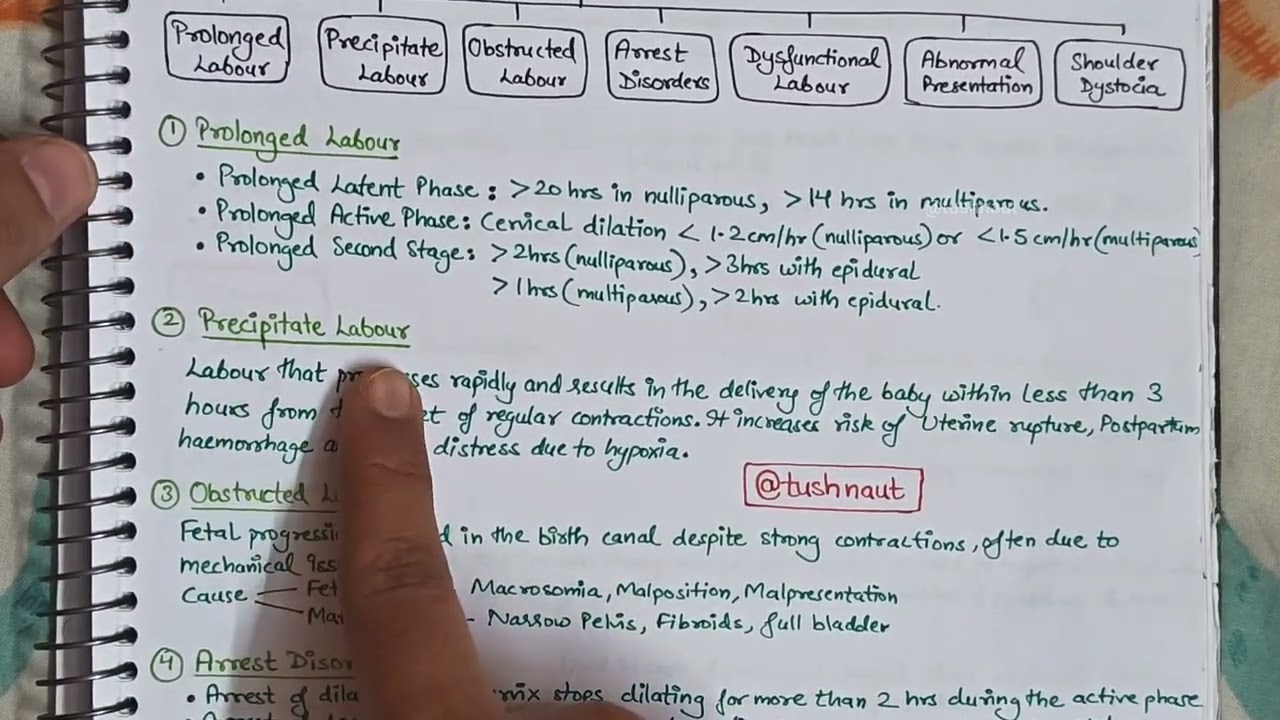 Prolonged Labour
Precipitate Labour
Obstructed Labour
Arrest Disorders
Dysfunctional Labour
Abnormal Presentation
Shoulder Dystocia
① Prolonged Labour
• Prolonged Latent Phase: >20 hrs in nulliparous, >14 hrs in multiparous.
• Prolonged Active Phase: Cervical dilation < 1.2cm/hr (nulliparous) or <1.5 cm/hr (multiparous)
• Prolonged Second Stage: >2hrs (nulliparous), >3hrs with epidural
>1hrs (multiparous), >2hrs with epidural.
② Precipitate Labour
Labour that rapidly and results in the delivery of the baby within less than 3
hours from of regular contractions. It increases risk of Uterine rupture, Postpartum
haemorrhage distress due to hypoxia.
@tushnaut
③ Obstructed
Fetal in the birth canal despite strong contractions, often due to
mechanical
Cause Macrosomia, Malposition, Malpresentation
- Narrow Pelvis, Fibroids, full bladder
④ Arrest
• Arrest of stops dilating for more than 2 hrs during the active phase